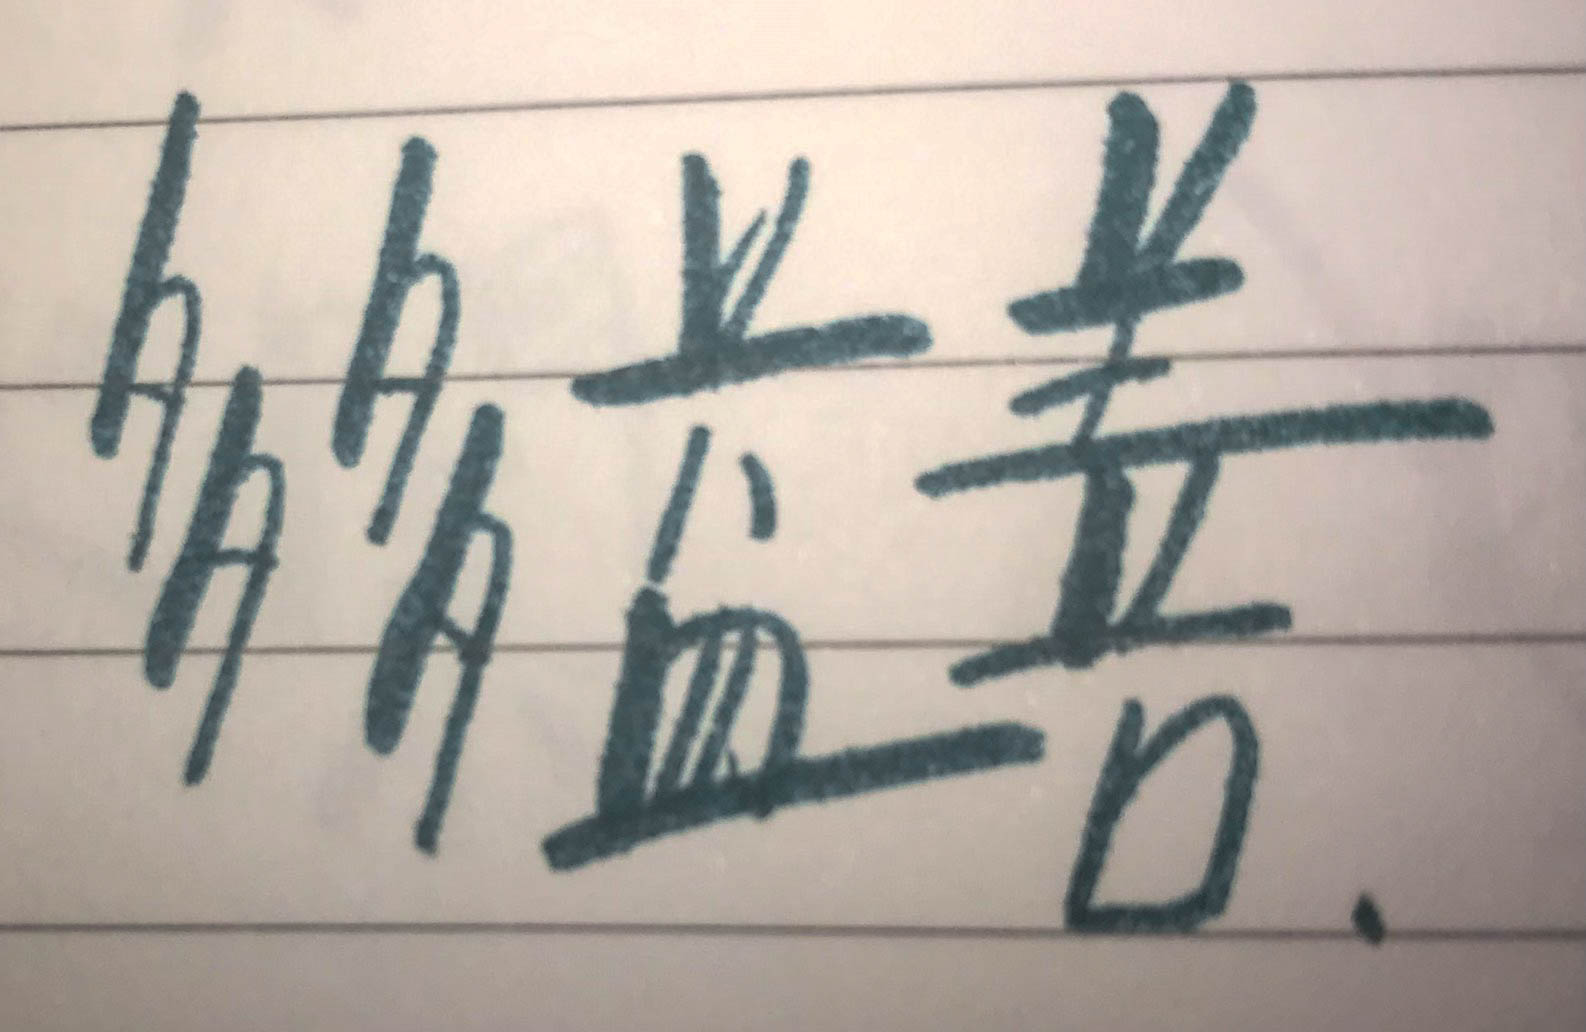 多多益善.